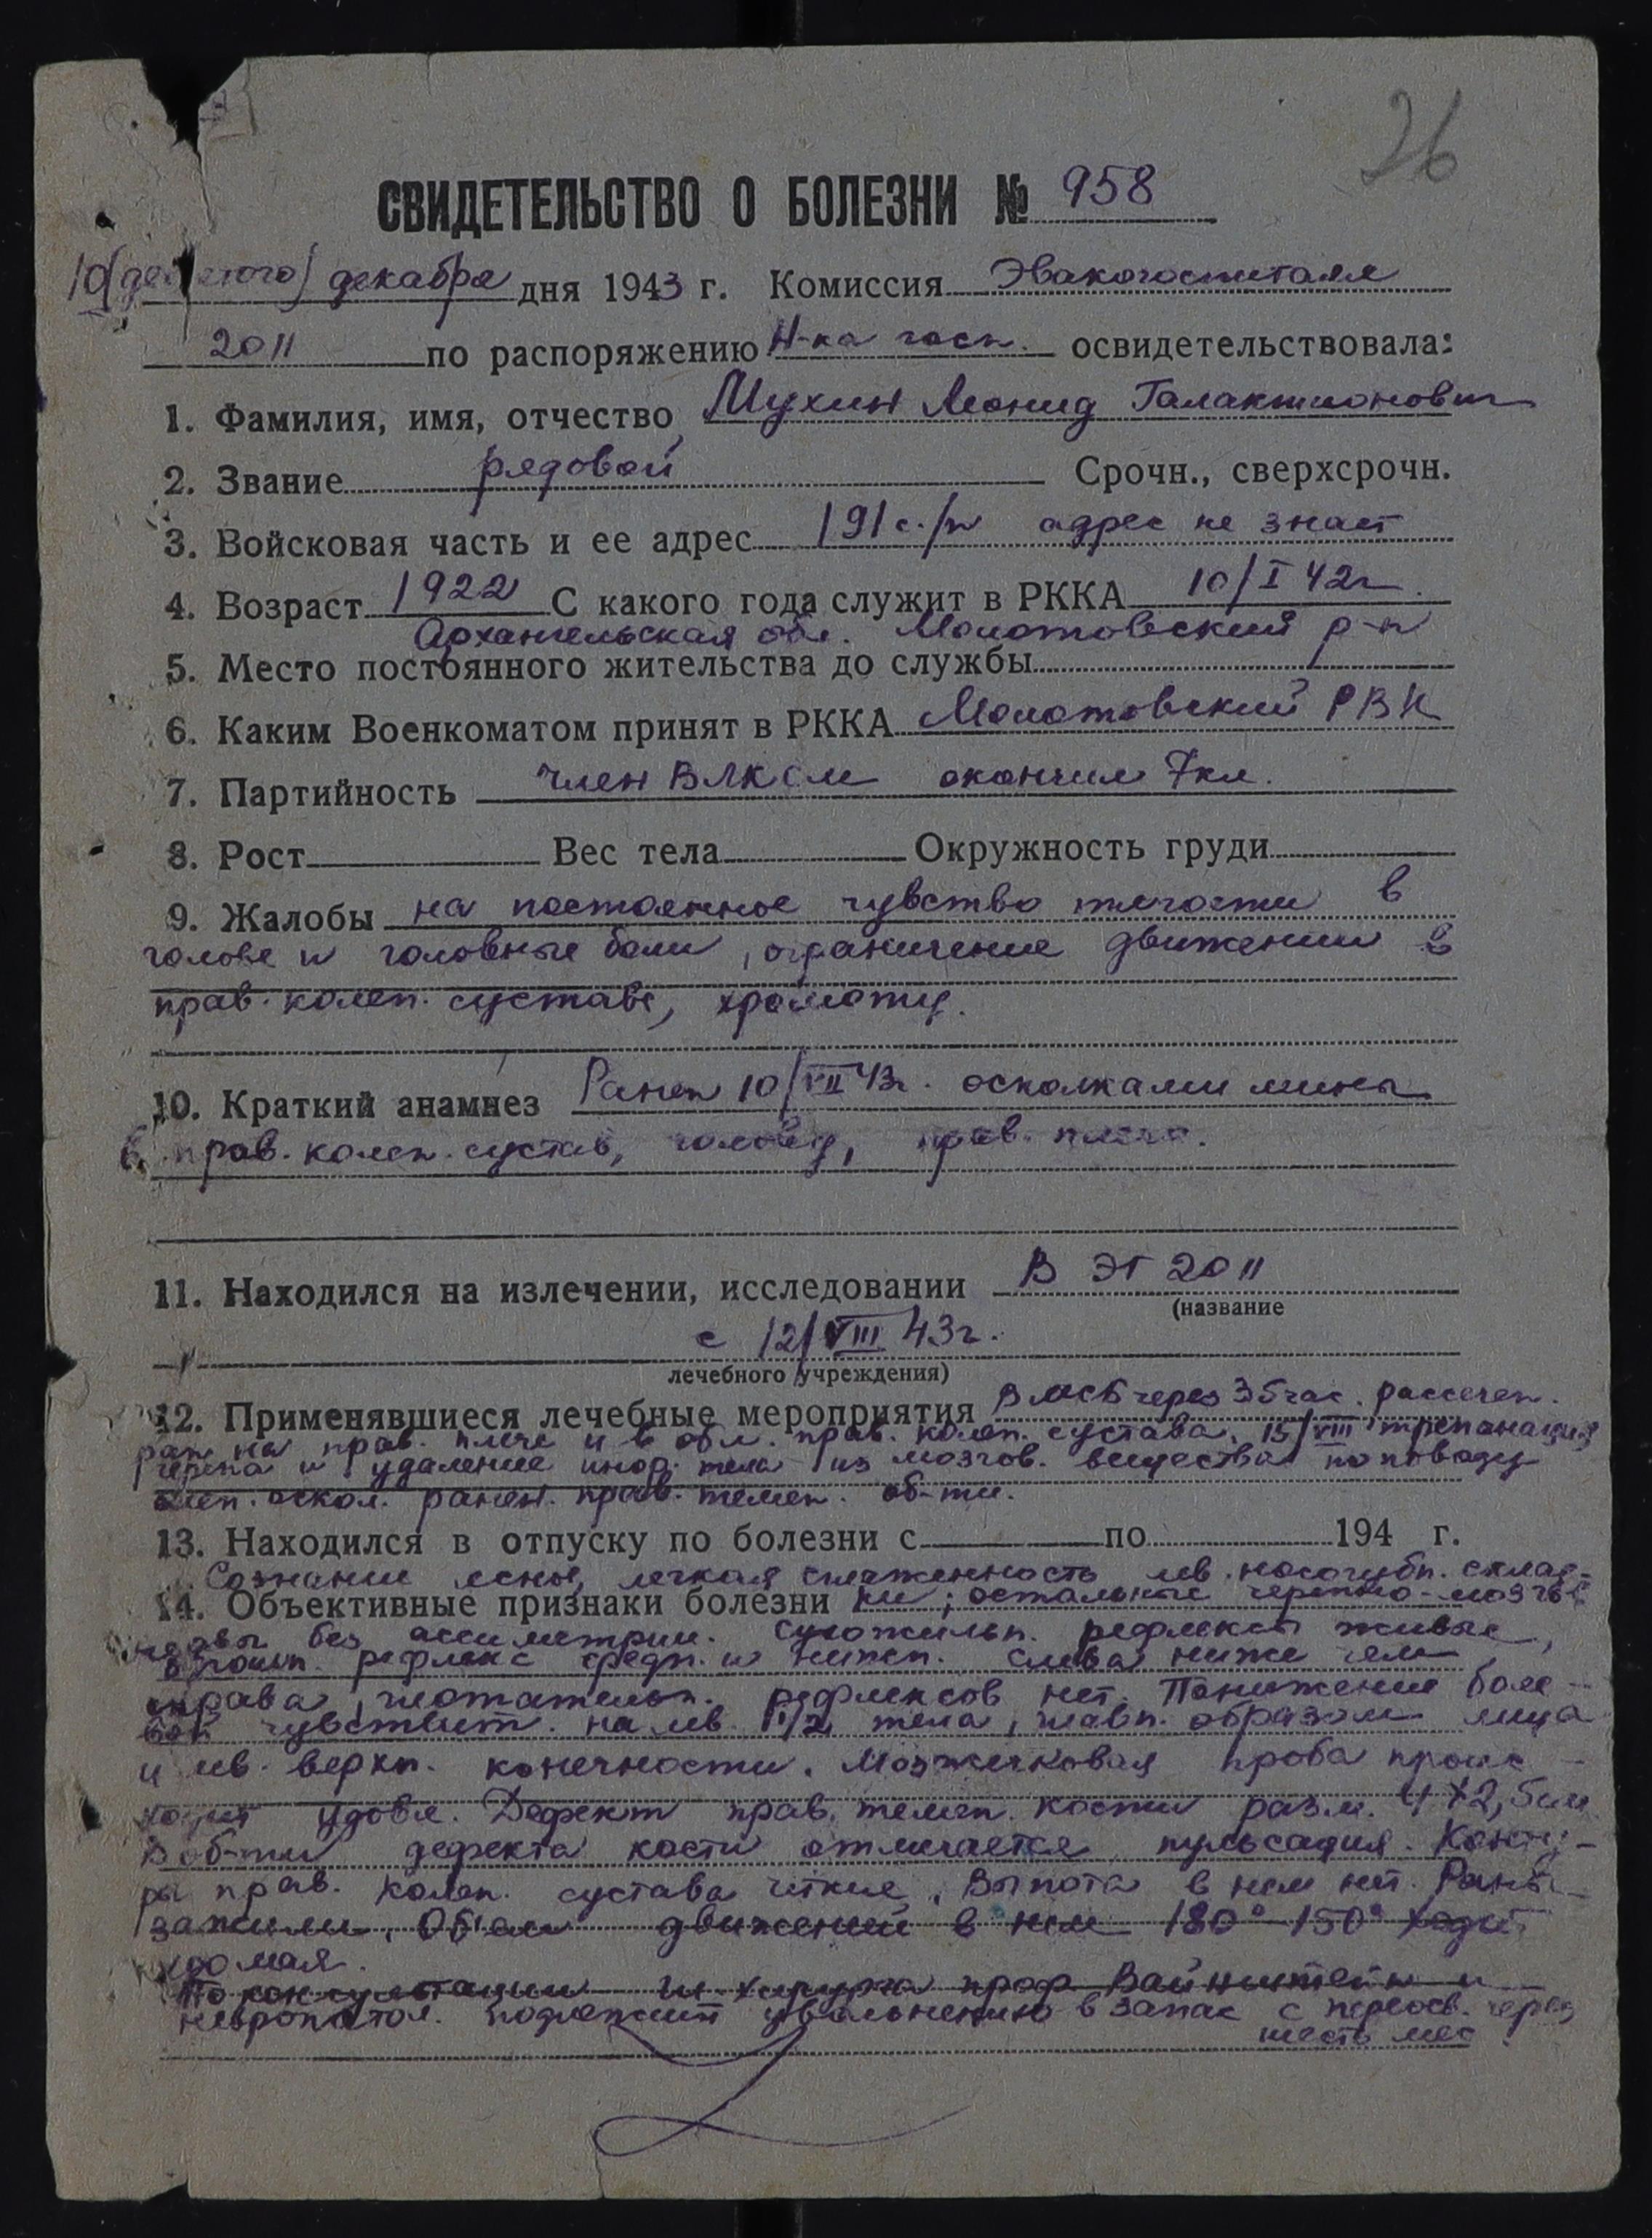 26
СВИДЕТЕЛЬСТВО О БОЛЕЗНИ № 958
10 декабря дня 1943 г. Комиссия Эвакогоспиталя
2011 по распоряжению Н-ка госп. освидетельствовала:
1. Фамилия, имя, отчество Мухин Леонид Галактионович
2. Звание рядовой Срочн., сверхсрочн.
3. Войсковая часть и ее адрес 191 с./п адрес не знает
4. Возраст 1922 С какого года служит в РККА 10/I 42г.
Архангельская обл. Молотовский р-н
5. Место постоянного жительства до службы
6. Каким Военкоматом принят в РККА Молотовский РВК
7. Партийность член ВЛКСМ окончил 7кл.
8. Рост Вес тела Окружность груди
9. Жалобы на постоянное чувство тягости в
голове и головные боли, ограничение движении в
прав. колен. суставе, хромоту.
10. Краткий анамнез Ранен 10/VII 43г. осколками мины
в прав. колен. сустав, голову, прав. плечо.
11. Находился на излечении, исследовании В ЭГ 2011
(название
с 12/VIII 43г.
лечебного учреждения)
12. Применявшиеся лечебные мероприятия В МСБ через 35 час. рассечен.
ран на прав. плече и в обл. прав. колен. сустава. 15/VIII трепанация
черепа и удаление инор. тела из мозгов. вещества по поводу
слеп. оскол. ранен. прав. темен. об-ти.
13. Находился в отпуску по болезни с по 194 г.
Сознание ясное, легкая сглаженность лев. носогубн. склад-
14. Объективные признаки болезни ки; остальные черепно-мозгов
нервы без ассиметрии. Сухожильн. рефлексы живые,
брюшн. рефлекс средн. и нижн. слева ниже чем
справа, глотательн. рефлексов нет. Понижение боле-
вой чувствит. на лев. 1/2 тела, главн. образом лица
и лев. верхн. конечности. Мозжечковая проба проис-
ходит удовл. Дефект прав. темен. кости разм. 4×2,5см
В об-ти дефекта кости отмечается пульсация. Конту-
ры прав. колен. сустава чткие. Выпота в нем нет. Раны
зажили. Объем движений в нем 180°-150° ходит
хромая.
По консультации гл. хирурга проф. Вайнштейн и
невропатол. подлежит увольнению в запас с переосв. через
шесть мес.